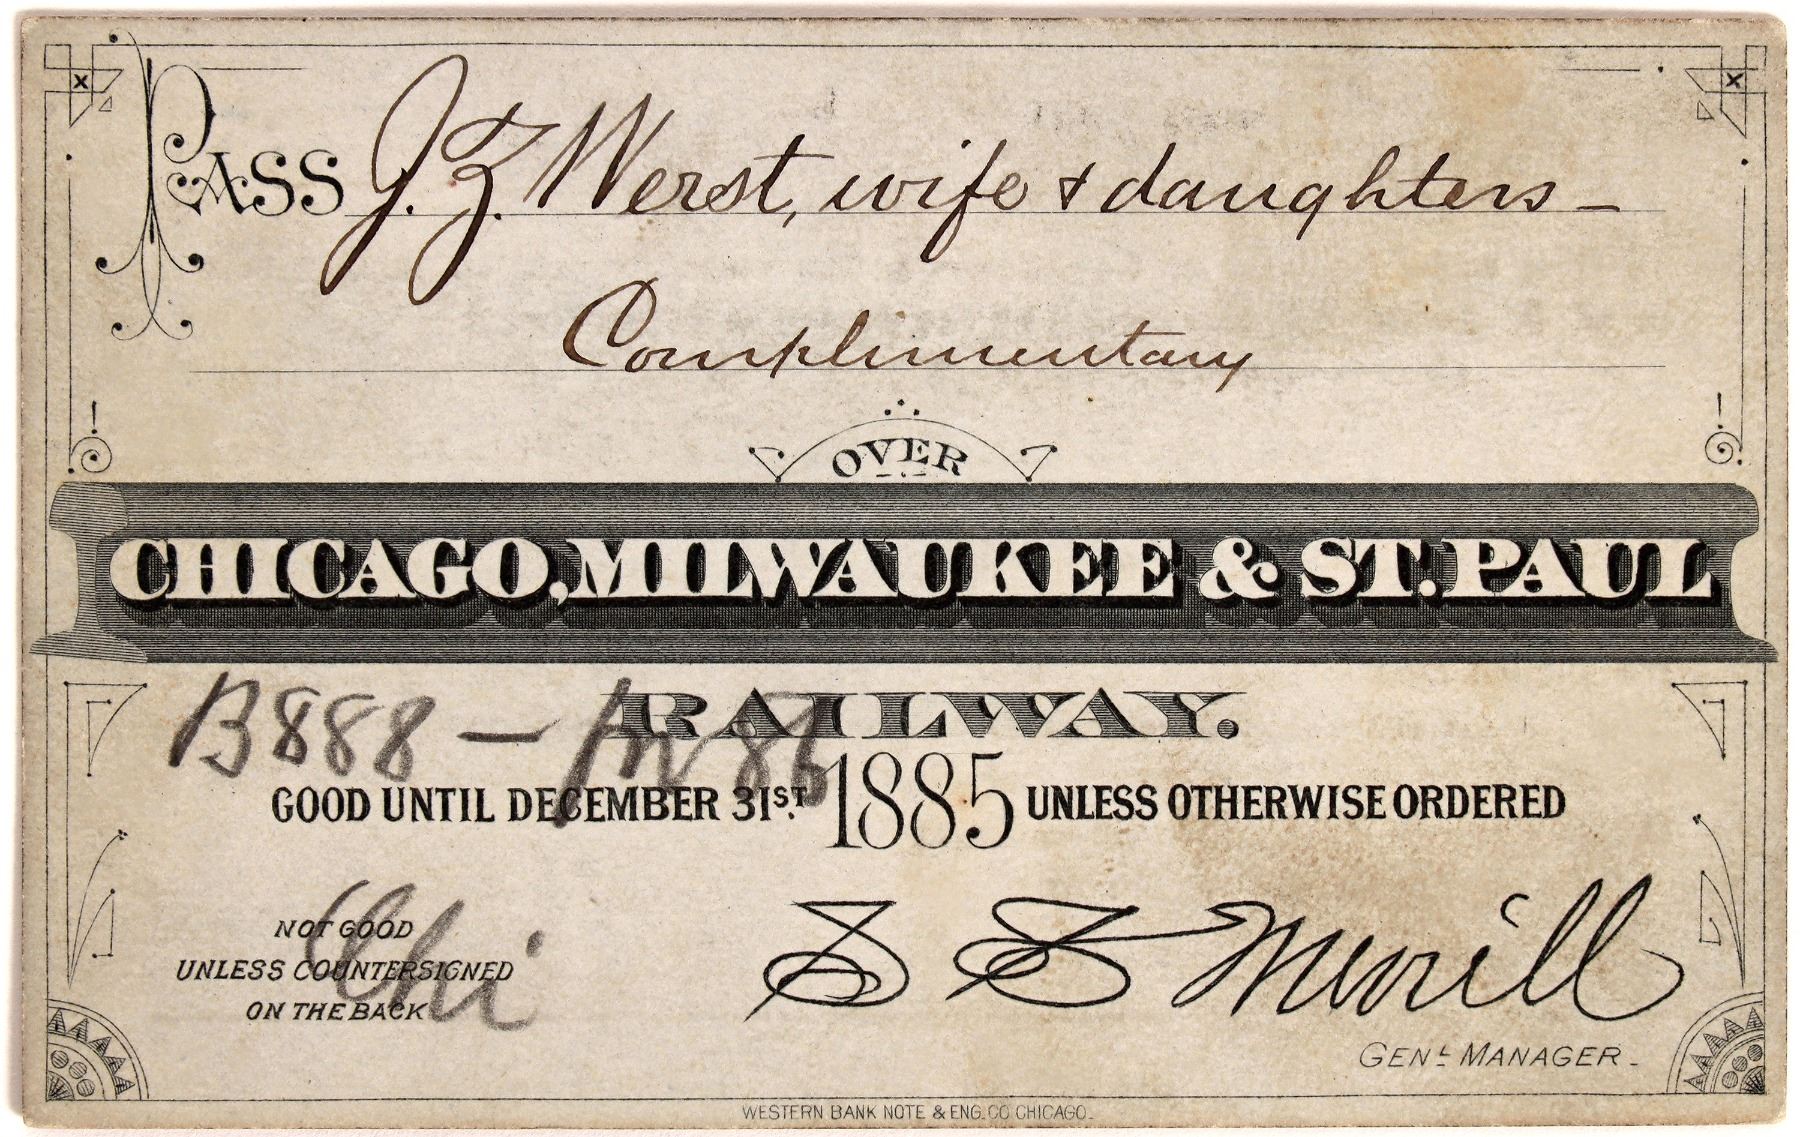 PASS J. Z. Werst, wife & daughters —
Complimentary
OVER
CHICAGO, MILWAUKEE & ST. PAUL
RAILWAY.
B888 —
GOOD UNTIL DECEMBER 31ST. 1885 UNLESS OTHERWISE ORDERED
NOT GOOD
UNLESS COUNTERSIGNED
ON THE BACK
Chi
S S Merrill
GENL MANAGER.
WESTERN BANK NOTE & ENG. CO CHICAGO.